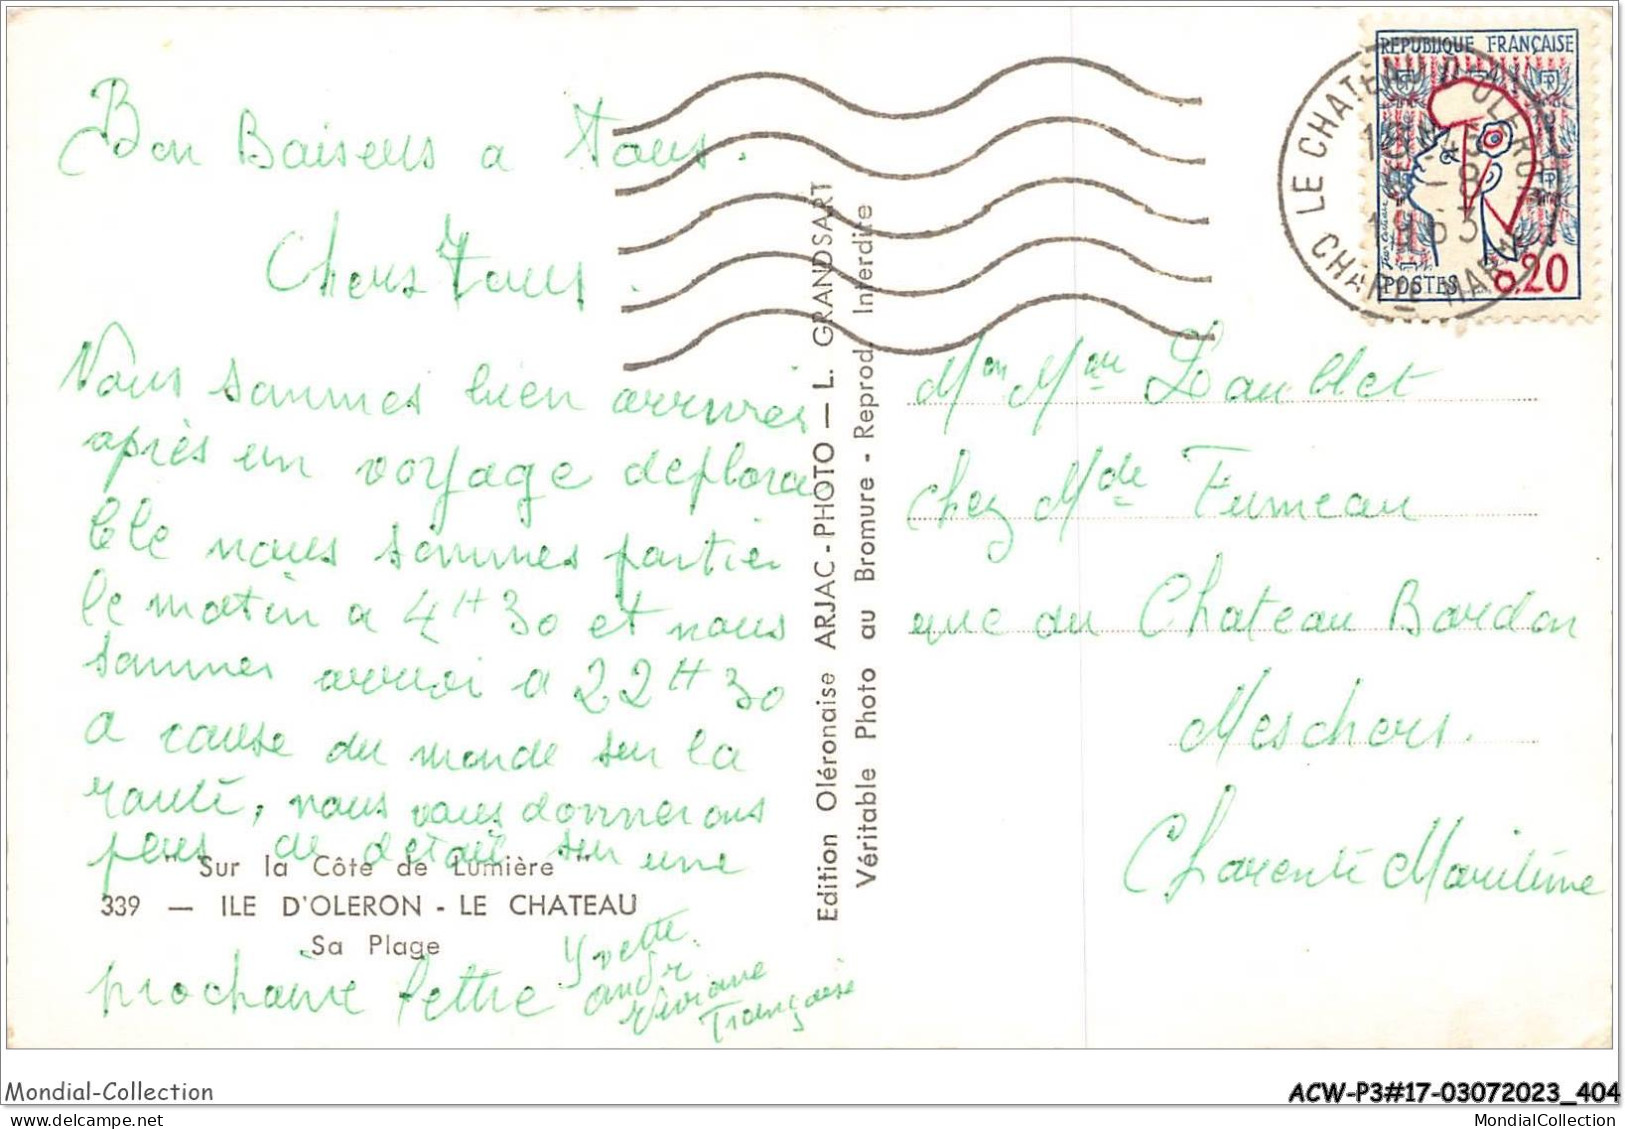 Bon Baisers a Tous.
Chers Tous.
Nous sommes bien arrivés
après un voyage deplora
ble nous sommes partie
le matin a 4H30 et nous
sommes arrivé a 22H30
a cause du monde sur la
route, nous vous donnerons
plus de detail sur une
prochaine lettre
Yvette
andr
Viviane
Françoise
" Sur la Côte de Lumière "
339 — ILE D'OLERON - LE CHATEAU
Sa Plage
Edition Oléronaise ARJAC-PHOTO — L. GRANDSART
Véritable Photo au Bromure - Reprod. Interdite
REPUBLIQUE FRANÇAISE
POSTES 0.20
LE CHATEAU D'OLERON
1963
CHARTE MARME
Mr Mme Laublet
chez Mde Fumeau
rue du Chateau Bardon
Meschers.
Charente Maritime
Mondial-Collection
ACW-P3#17-03072023_404
MondialCollection
MondialCollection